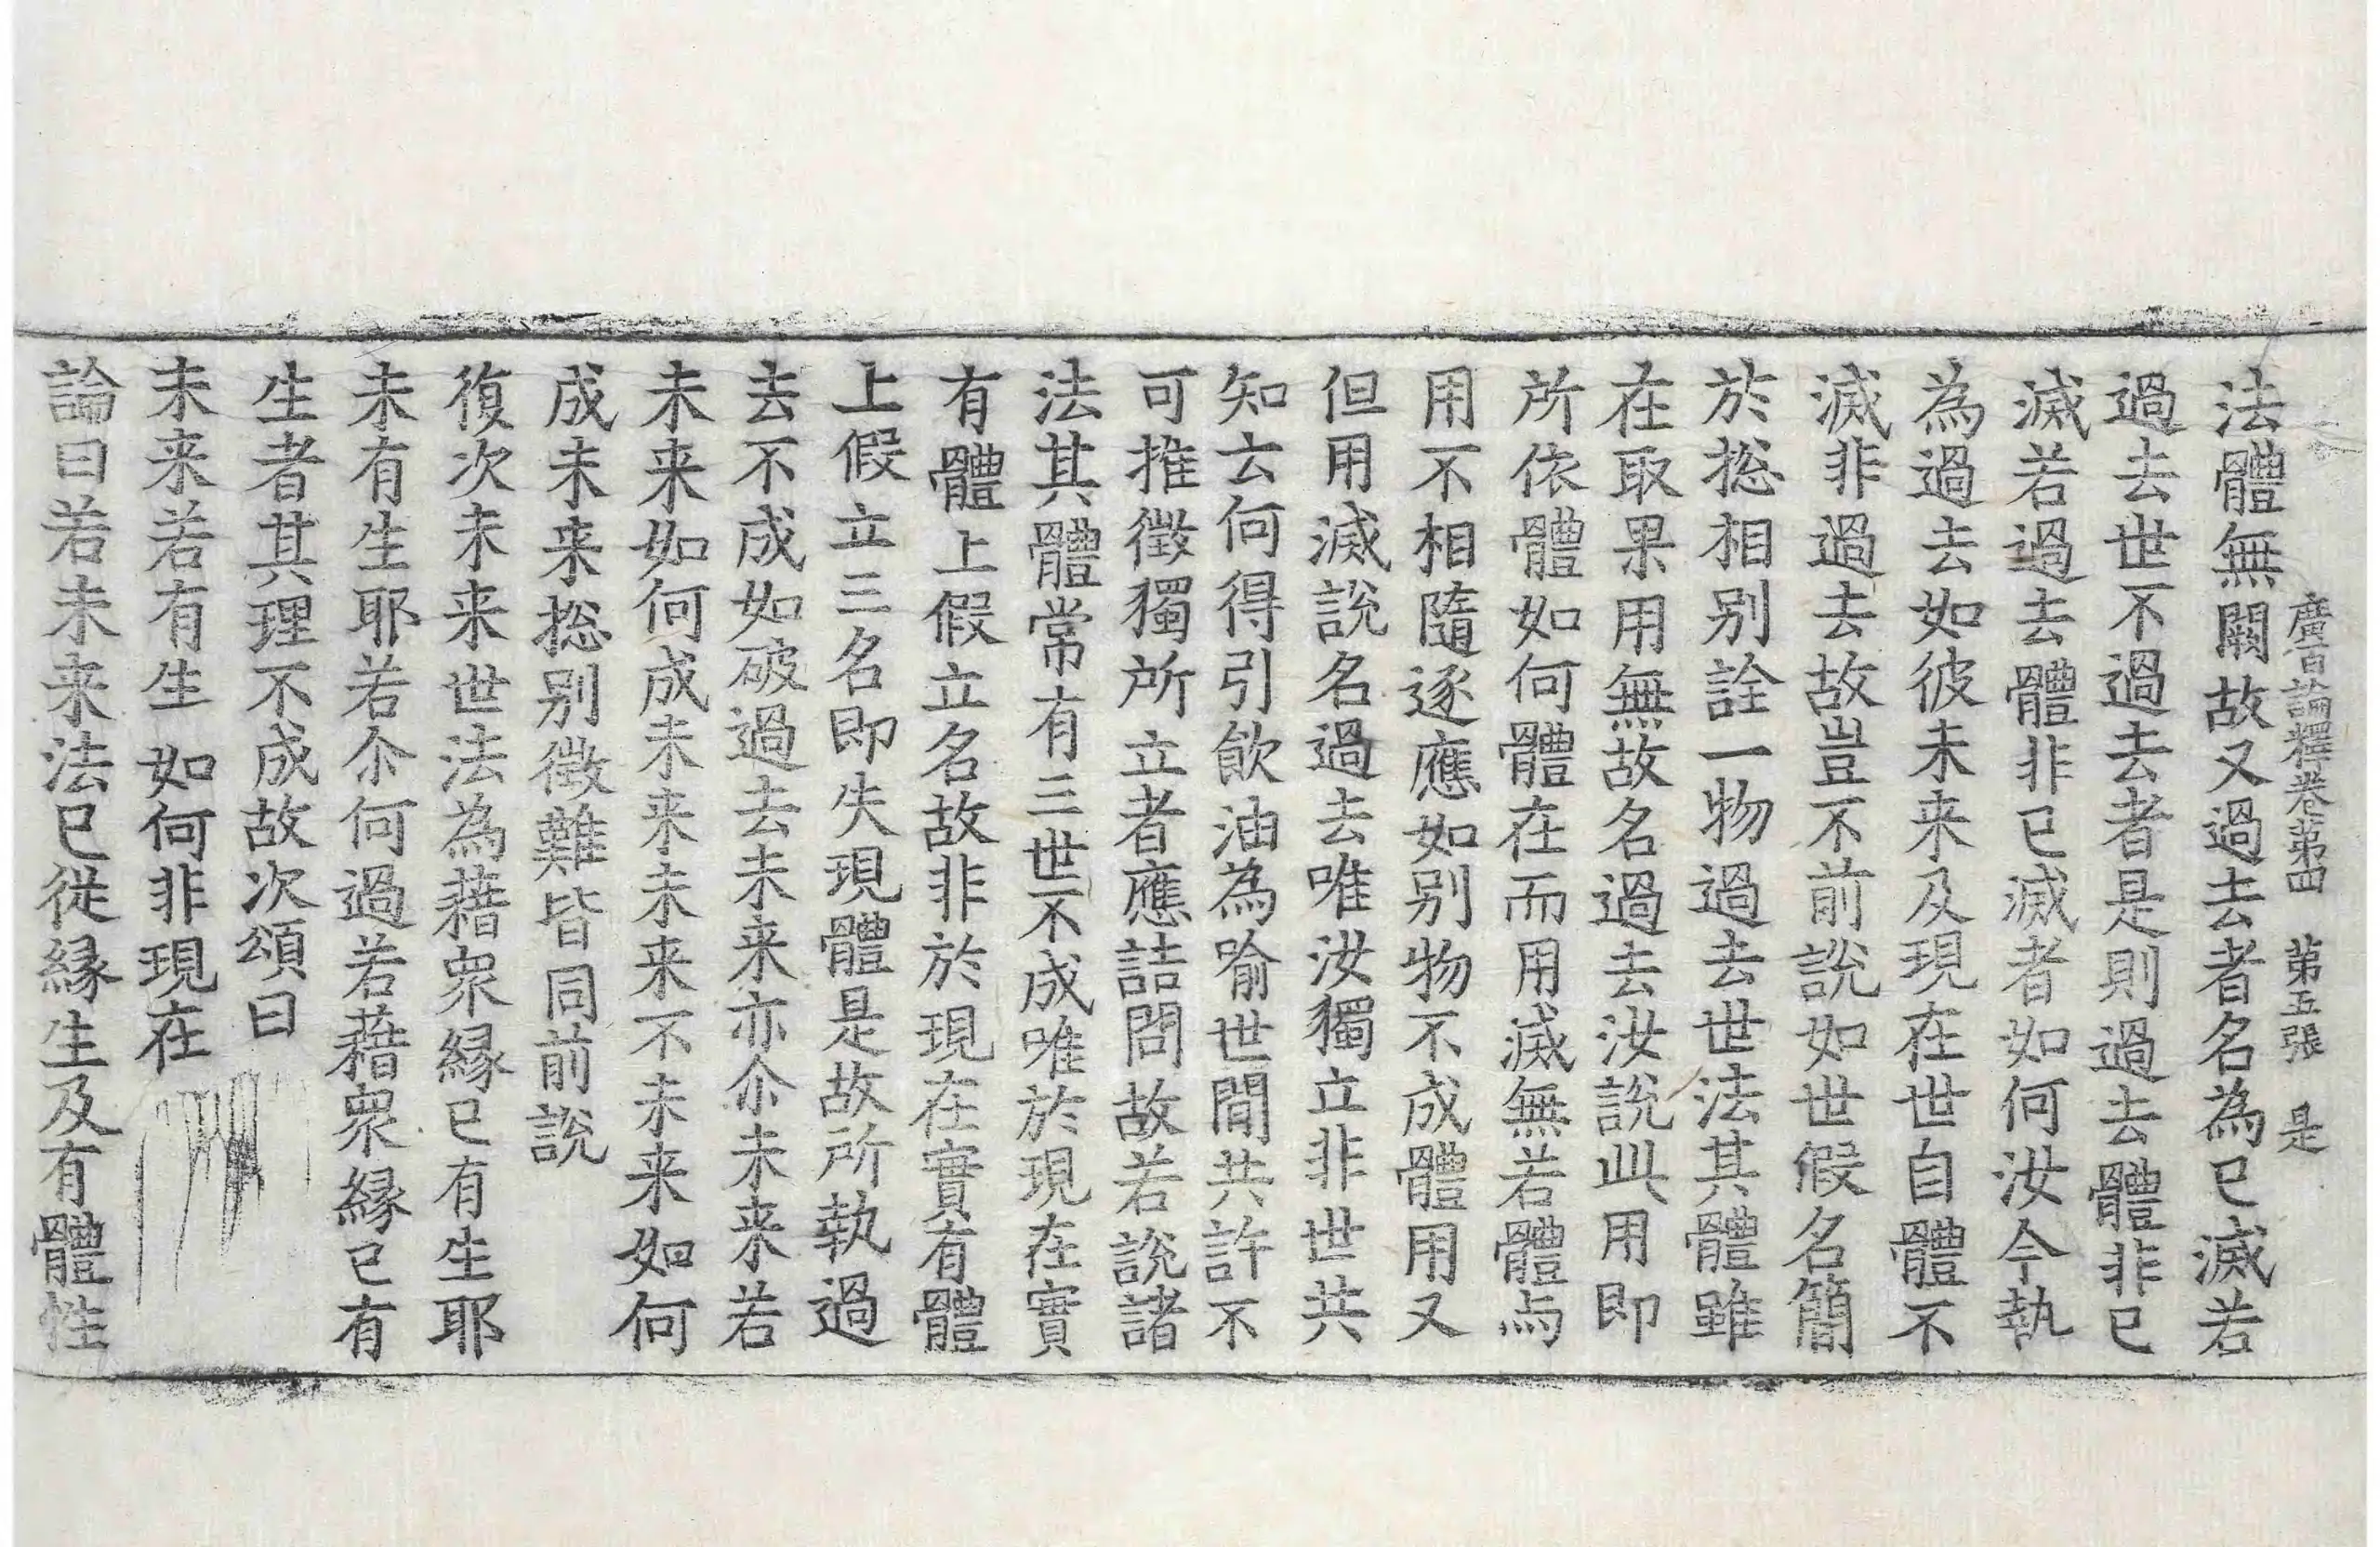 廣百論釋卷第四 第五張 是
法體無闕故又過去者名為已滅若
過去世不過去者是則過去體非已
滅若過去體非已滅者如何汝今執
為過去如彼未来及現在世自體不
滅非過去故豈不前說如世假名簡
於捴相别詮一物過去世法其體雖
在取果用無故名過去汝說此用即
所依體如何體在而用滅無若體与
用不相隨逐應如别物不成體用又
但用滅說名過去唯汝獨立非世共
知云何得引飲油為喻世間共許不
可推徵獨所立者應詰問故若說諸
法其體常有三世不成唯於現在實
有體上假立名故非於現在實有體
上假立三名即失現體是故所執過
去不成如破過去未来亦尒未来若
未来如何成未来未来不未来如何
成未来捴别徵難皆同前說
復次未来世法為藉衆縁已有生耶
未有生耶若尒何過若藉衆縁已有
生者其理不成故次頌曰
未来若有生 如何非現在
論曰若未来法已從縁生及有體性